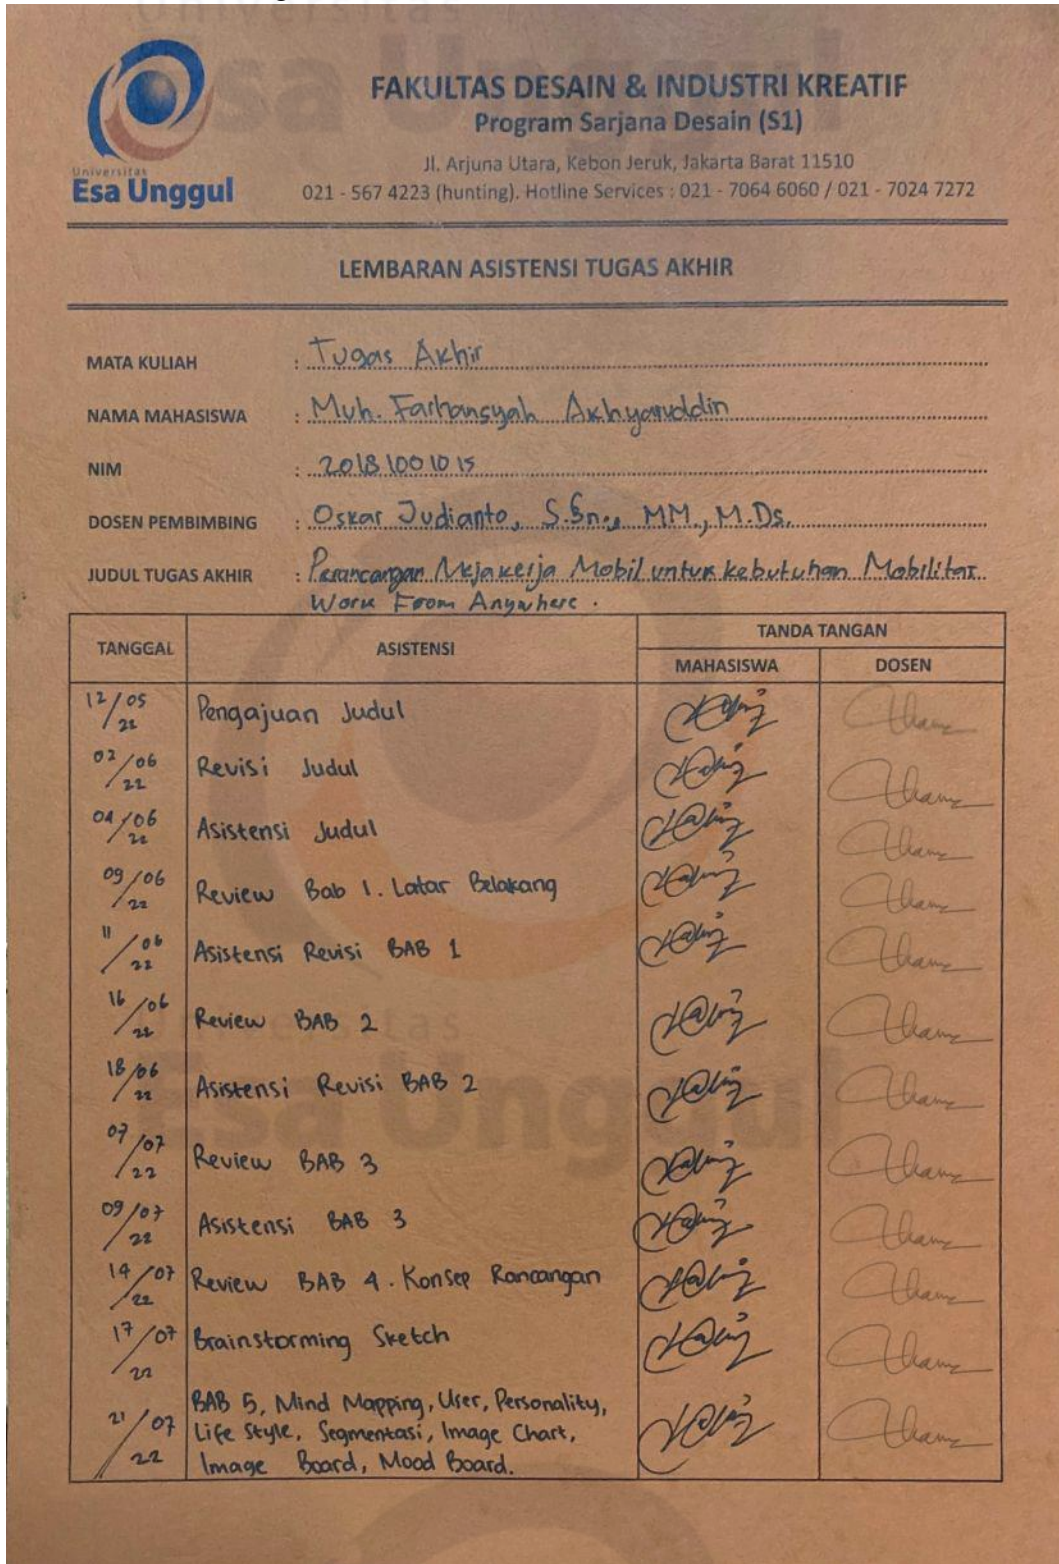 Universitas
Esa Unggul
FAKULTAS DESAIN & INDUSTRI KREATIF
Program Sarjana Desain (S1)
Jl. Arjuna Utara, Kebon Jeruk, Jakarta Barat 11510
021 - 567 4223 (hunting). Hotline Services : 021 - 7064 6060 / 021 - 7024 7272
Universitas
Esa Unggul
LEMBARAN ASISTENSI TUGAS AKHIR
MATA KULIAH : Tugas Akhir
NAMA MAHASISWA : Muh. Farhansyah Akhyaruddin
NIM : 20181001015
DOSEN PEMBIMBING : Oskar Judianto, S.Sn., MM., M.Ds.
JUDUL TUGAS AKHIR : Perancangan Meja kerja Mobil untuk kebutuhan Mobilitas
Work From Anywhere.
TANGGAL ASISTENSI TANDA TANGAN
MAHASISWA DOSEN
12/05/22 Pengajuan Judul
02/06/22 Revisi Judul
04/06/22 Asistensi Judul
09/06/22 Review Bab 1. Latar Belakang
11/06/22 Asistensi Revisi BAB 1
16/06/22 Review BAB 2
18/06/22 Asistensi Revisi BAB 2
07/07/22 Review BAB 3
09/07/22 Asistensi BAB 3
14/07/22 Review BAB 4. Konsep Rancangan
17/07/22 Brainstorming Sketch
21/07/22 BAB 5, Mind Mapping, User, Personality,
Life Style, Segmentasi, Image Chart,
Image Board, Mood Board.
Universitas
Esa Unggul